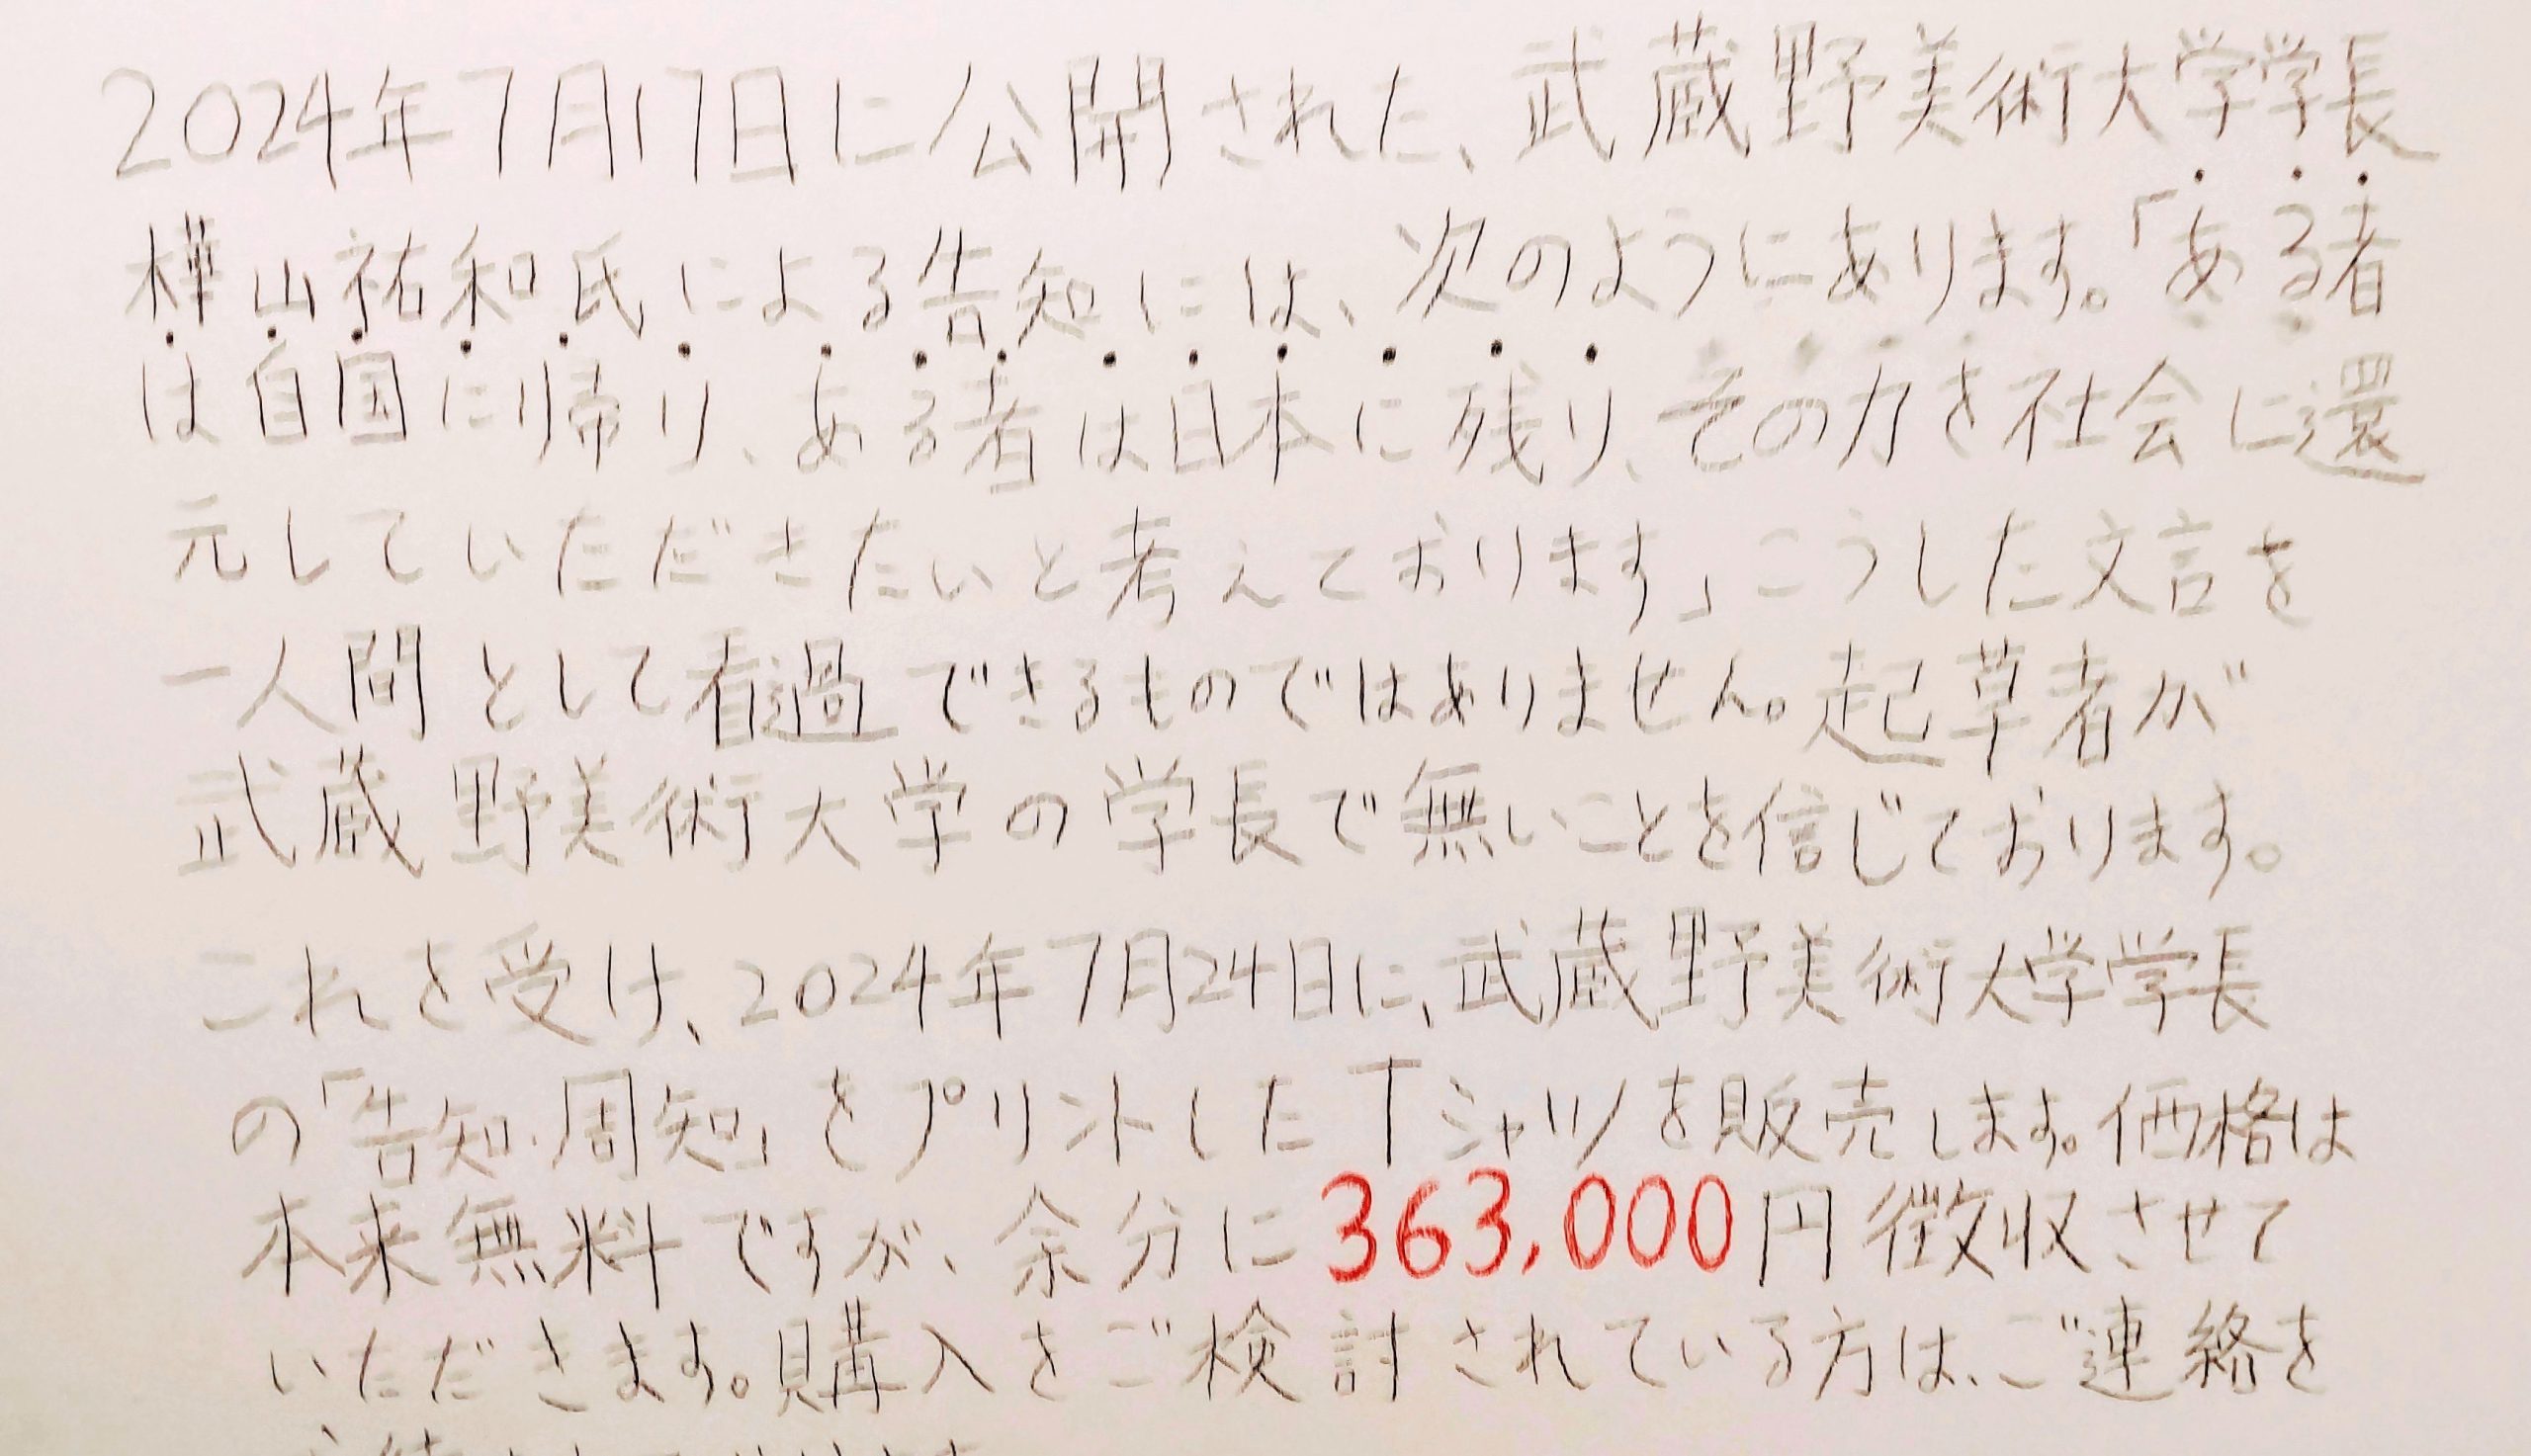 2024年7月17日に公開された、武蔵野美術大学学長
樺山祐和氏による告知には、次のようにあります。「ある者
は自国に帰り、ある者は日本に残り、その力を社会に還
元していただきたいと考えております」こうした文言を
一人間として看過できるものではありません。起草者が
武蔵野美術大学の学長で無いことを信じております。
これを受け、2024年7月24日に、武蔵野美術大学学長
の「告知・周知」をプリントしたTシャツを販売します。価格は
本来無料ですが、余分に363,000円徴収させて
いただきます。購入をご検討されている方は、ご連絡を